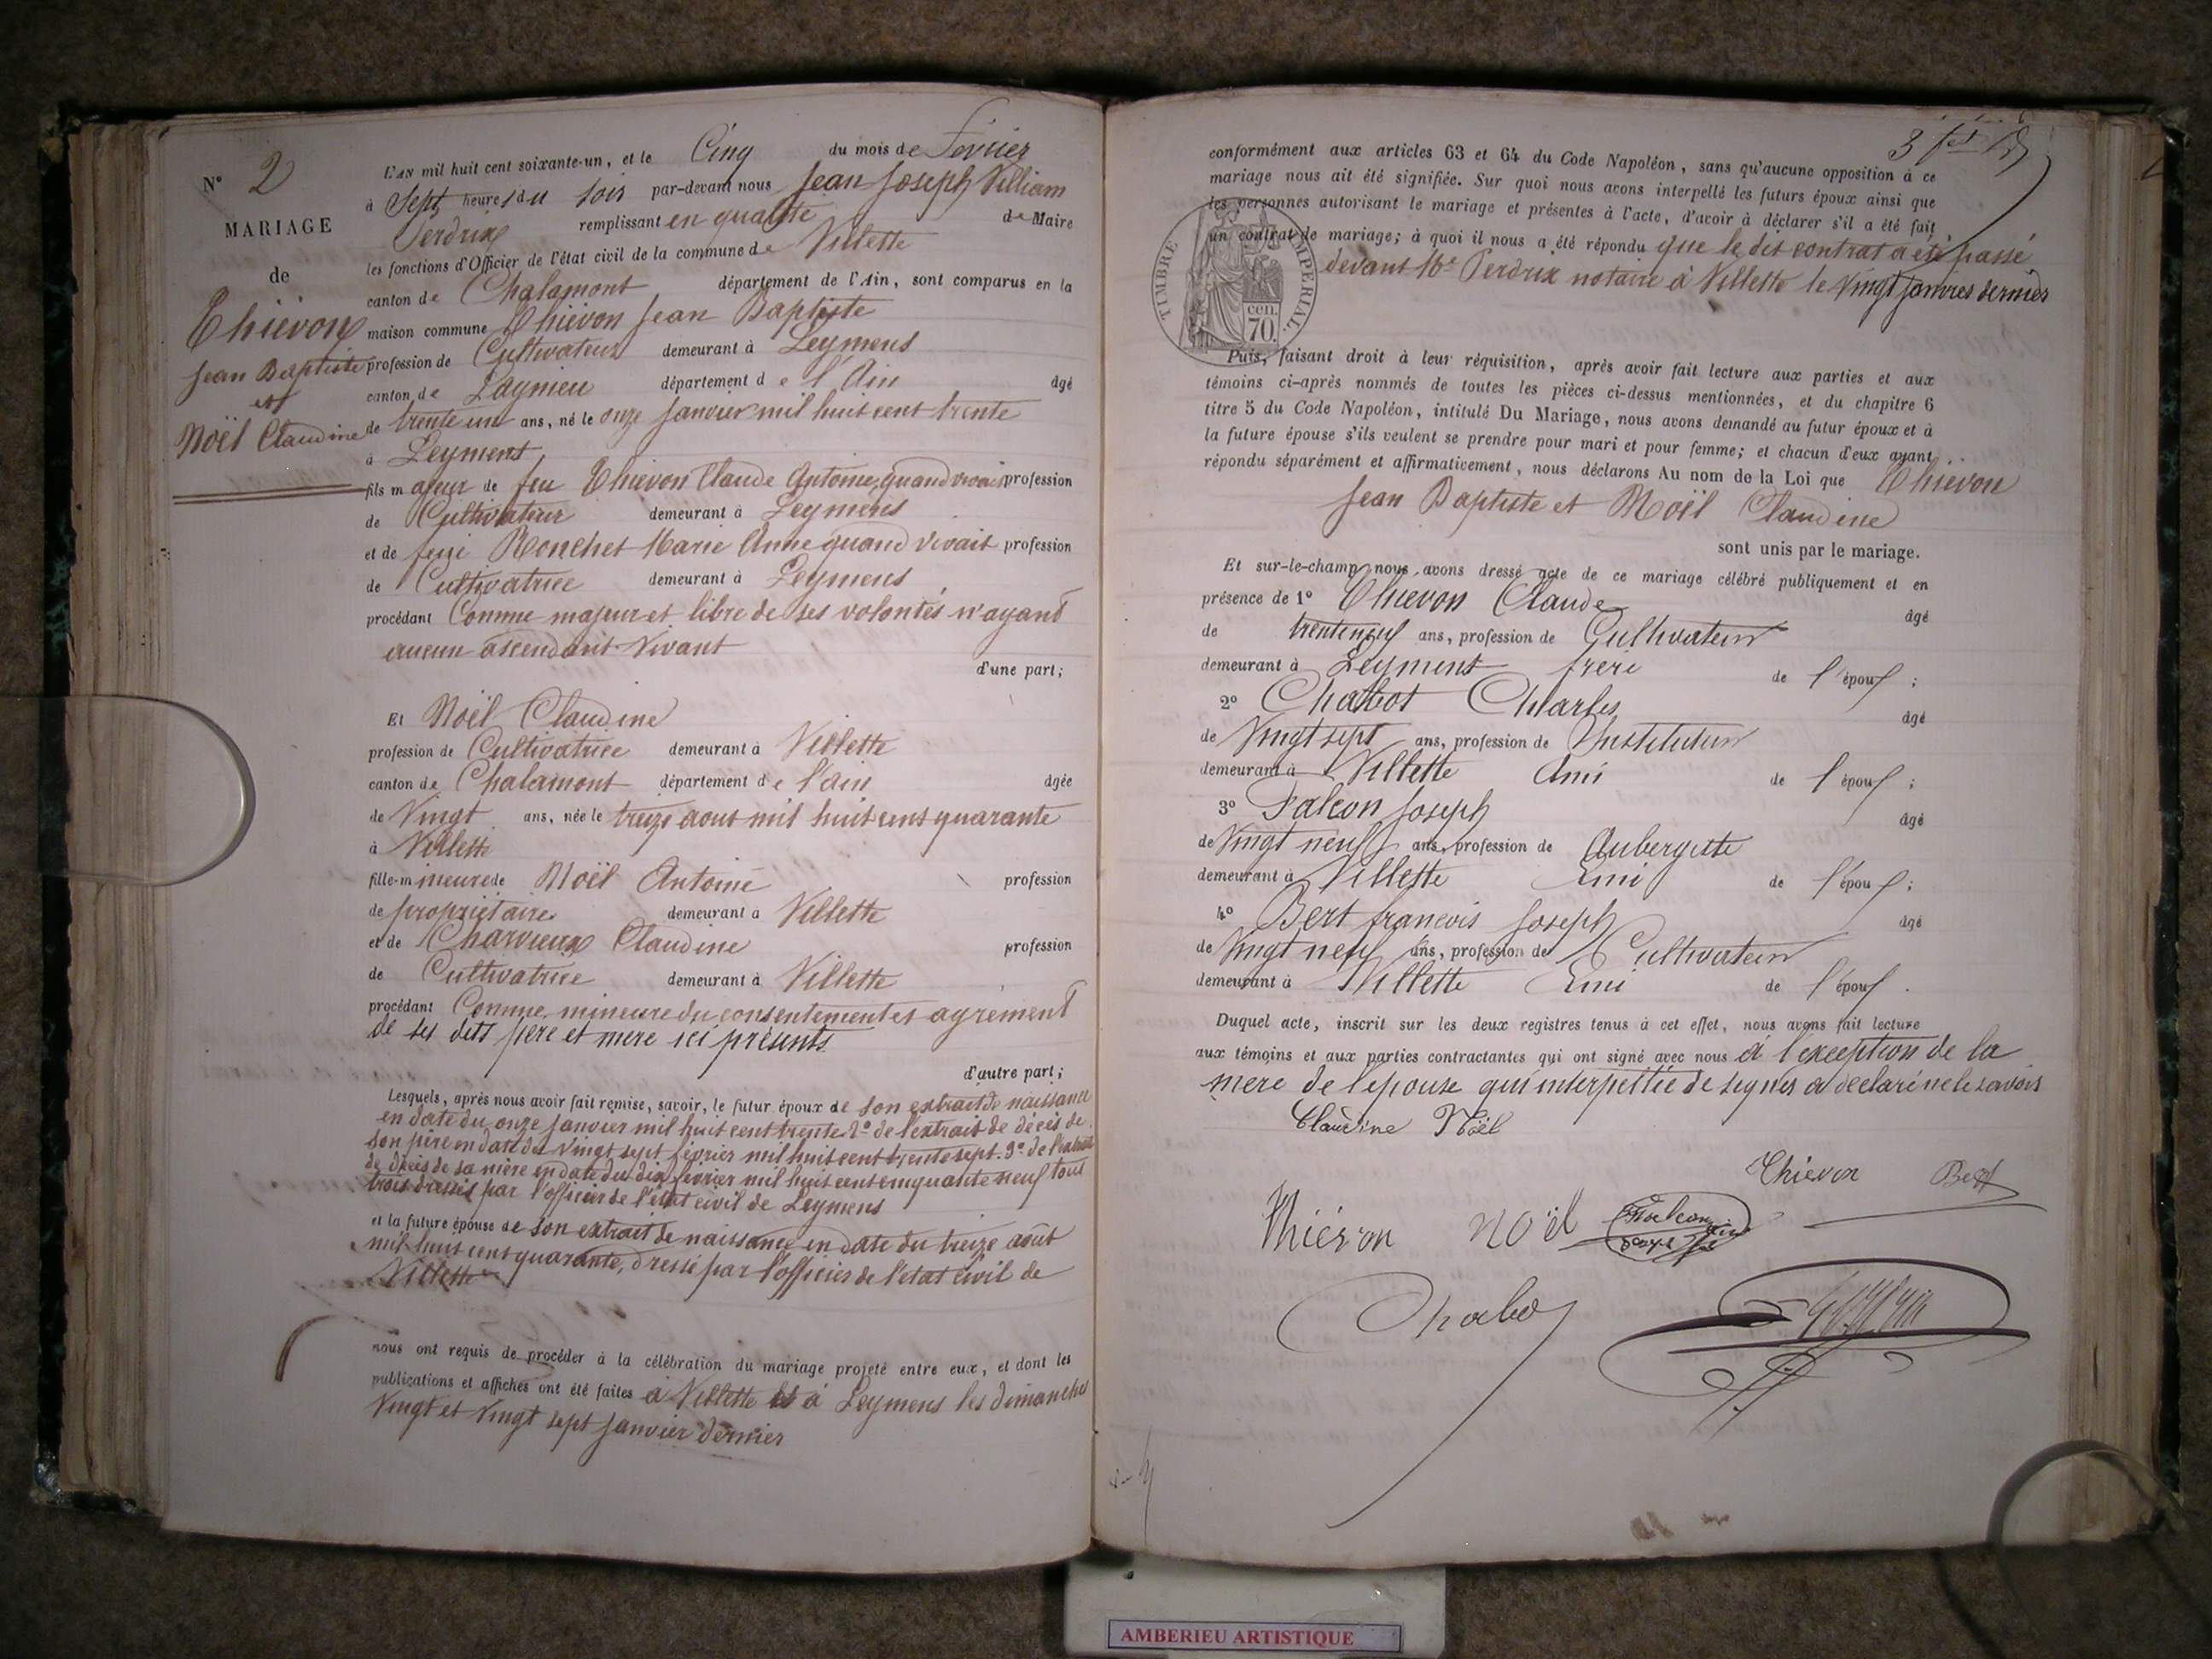 N° 2
MARIAGE
de
Thievon
Jean Baptiste
et
Noël Claudine
L'AN mil huit cent soixante-un, et le Cinq du mois de Février
à Sept heures du soir par-devant nous Jean Joseph William
Perdrix remplissant en qualité de Maire
les fonctions d'Officier de l'état civil de la commune de Villette
canton de Chalamont département de l'Ain, sont comparus en la
maison commune Thievon Jean Baptiste
profession de Cultivateur demeurant à Leymens
canton de Lagnieu département de l'Ain âgé
de trente un ans, né le onze janvier mil huit cent trente
à Leyment
fils majeur de feu Thievon Claude Antoine, quand vivait profession
de Cultivateur demeurant à Leymens
et de feue Ronchet Marie Anne quand vivait profession
de Cultivatrice demeurant à Leymens
procédant Comme majeur et libre de ses volontés n'ayant
aucun ascendant vivant
d'une part;
Et Noël Claudine
profession de Cultivatrice demeurant à Villette
canton de Chalamont département de l'ain âgée
de Vingt ans, née le treize aout mil huit cent quarante
à Villette
fille mineure de Noël Antoine profession
de propriétaire demeurant à Villette
et de Charvieux Claudine profession
de Cultivatrice demeurant à Villette
procédant Comme mineure du consentement et agrément
de ses dits père et mere ici présents
d'autre part;
Lesquels, après nous avoir fait remise, savoir, le futur époux de son extrait de naissance
en date du onze janvier mil huit cent trente 2° de l'extrait de décès de
son père en date du vingt sept février mil huit cent trente sept. 3° de l'extrait
de décès de sa mère en date du dix février mil huit cent cinquante neuf tout
trois dressés par l'officier de l'état civil de Leymens
et la future épouse de son extrait de naissance en date du treize août
mil huit cent quarante, dressé par l'officier de l'état civil de
Villette
nous ont requis de procéder à la célébration du mariage projeté entre eux, et dont les
publications et affiches ont été faites à Villette et à Leymens les dimanches
Vingt et Vingt sept janvier dernier
conformément aux articles 63 et 64 du Code Napoléon, sans qu'aucune opposition à ce
mariage nous ait été signifiée. Sur quoi nous avons interpellé les futurs époux ainsi que
les personnes autorisant le mariage et présentes à l'acte, d'avoir à déclarer s'il a été fait
un contrat de mariage; à quoi il nous a été répondu que le dit contrat a été passé
devant Me Perdrix notaire à Villette le vingt janvier dernier
TIMBRE IMPERIAL.
cen.
70.
Puis, faisant droit à leur réquisition, après avoir fait lecture aux parties et aux
témoins ci-après nommés de toutes les pièces ci-dessus mentionnées, et du chapitre 6
titre 5 du Code Napoléon, intitulé Du Mariage, nous avons demandé au futur époux et à
la future épouse s'ils veulent se prendre pour mari et pour femme; et chacun d'eux ayant
répondu séparément et affirmativement, nous déclarons Au nom de la Loi que Thievon
Jean Baptiste et Noël Claudine
sont unis par le mariage.
Et sur-le-champ nous avons dressé acte de ce mariage célébré publiquement et en
présence de 1° Thievon Claude âgé
de trente neuf ans, profession de Cultivateur
demeurant à Leyment frère de l'époux ;
2° Chabot Charles âgé
de Vingt sept ans, profession de Instituteur
demeurant à Villette Ami de l'époux ;
3° Falcon Joseph âgé
de Vingt neuf ans, profession de Aubergiste
demeurant à Villette Ami de l'époux ;
4° Bert francois Joseph âgé
de Vingt neuf ans, profession de Cultivateur
demeurant à Villette Ami de l'époux .
Duquel acte, inscrit sur les deux registres tenus à cet effet, nous avons fait lecture
aux témoins et aux parties contractantes qui ont signé avec nous à l'exception de la
mere de l'epouse qui interpellée de signer a déclaré ne le savoir
Claudine Noël
Thievon Bert
Thiévon Noël Falcon
Chabot
AMBERIEU ARTISTIQUE